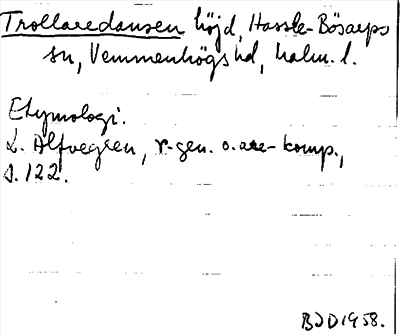 Trollaredansen höjd, Hassle-Bösarps
sn, Vemmenhögs hd, Malm. l.
Etymologi:
L. Alfvegren, r-gen. o. are-komp.,
s. 122.
BJD 1958.